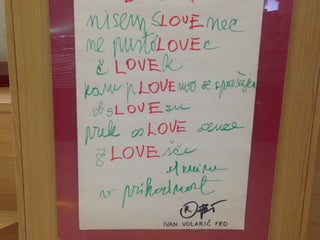 nisem sLOVEnec
ne pustoLOVEc
č LOVEk
kam pLOVEmo se sprašujem
obsLOVEsu
prek osLOVE
zLOVEšče
v prihodnost
IVAN VOLARIČ FEO